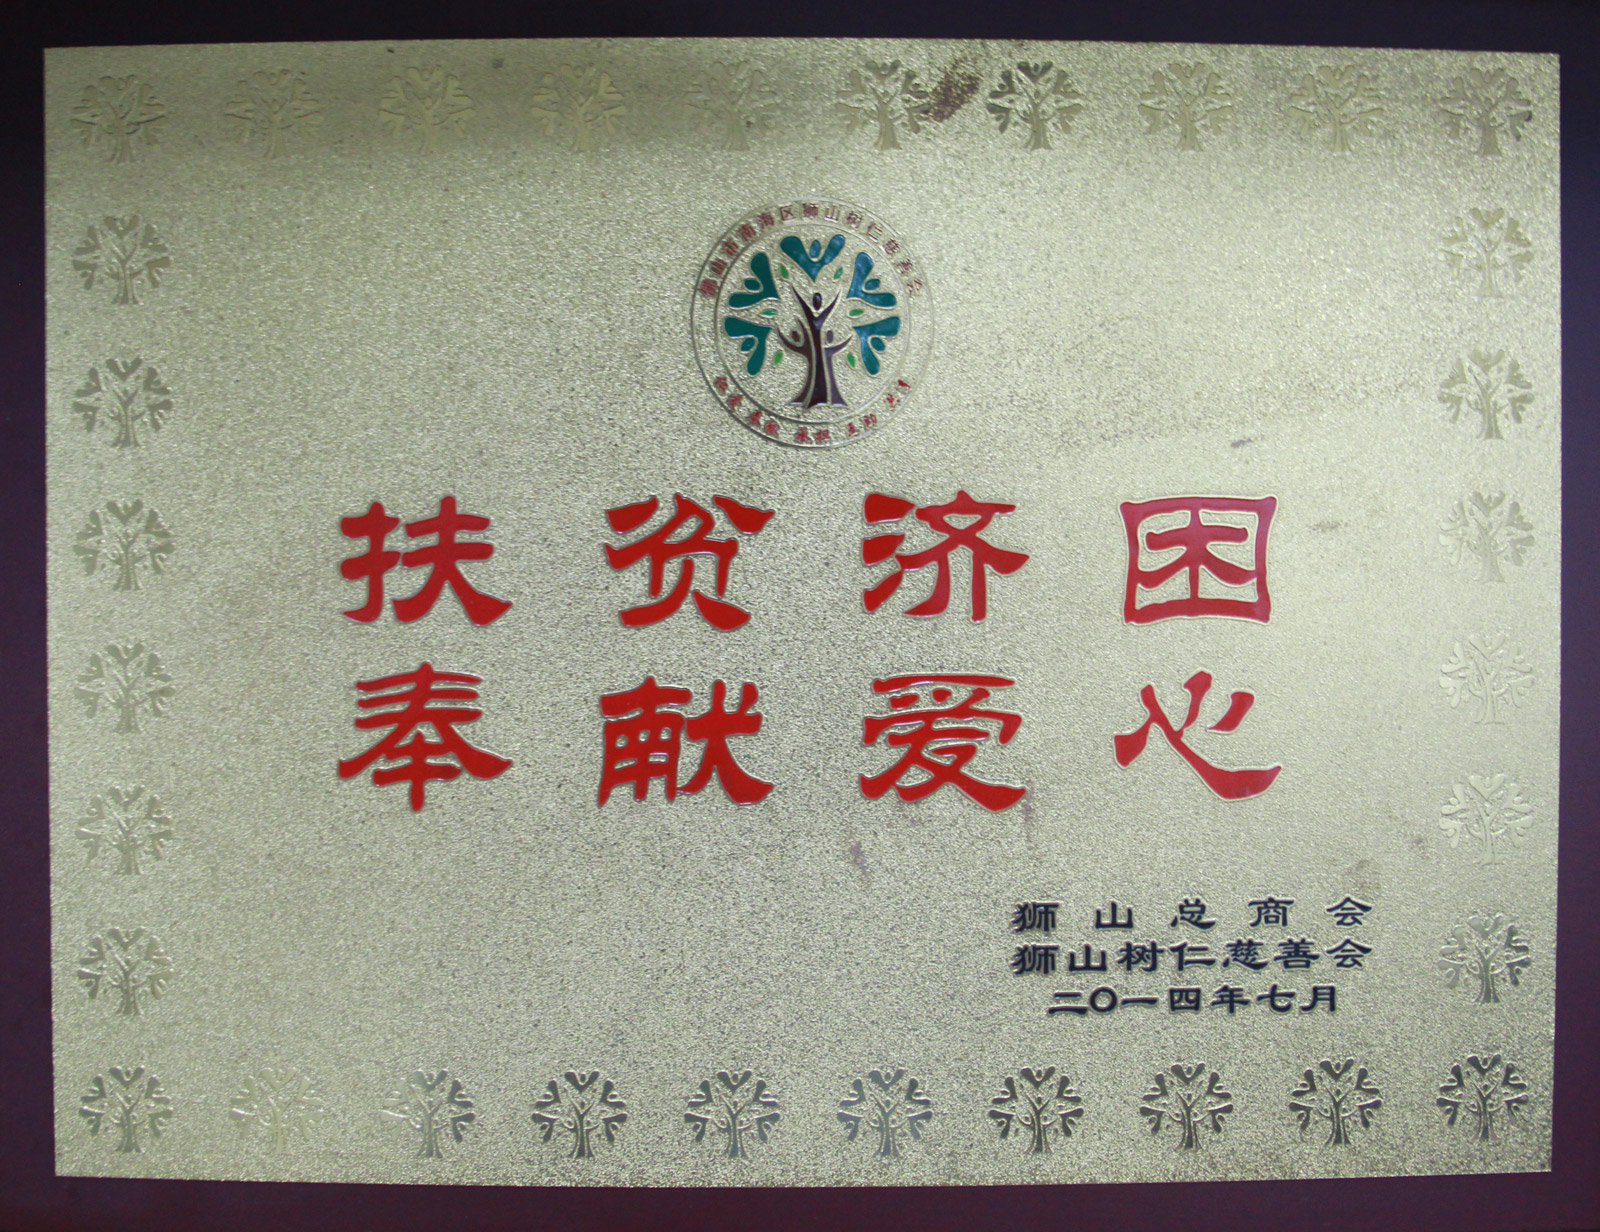 佛山市南海区狮山树仁慈善会
扶贫济困
奉献爱心
狮山总商会
狮山树仁慈善会
二〇一四年七月